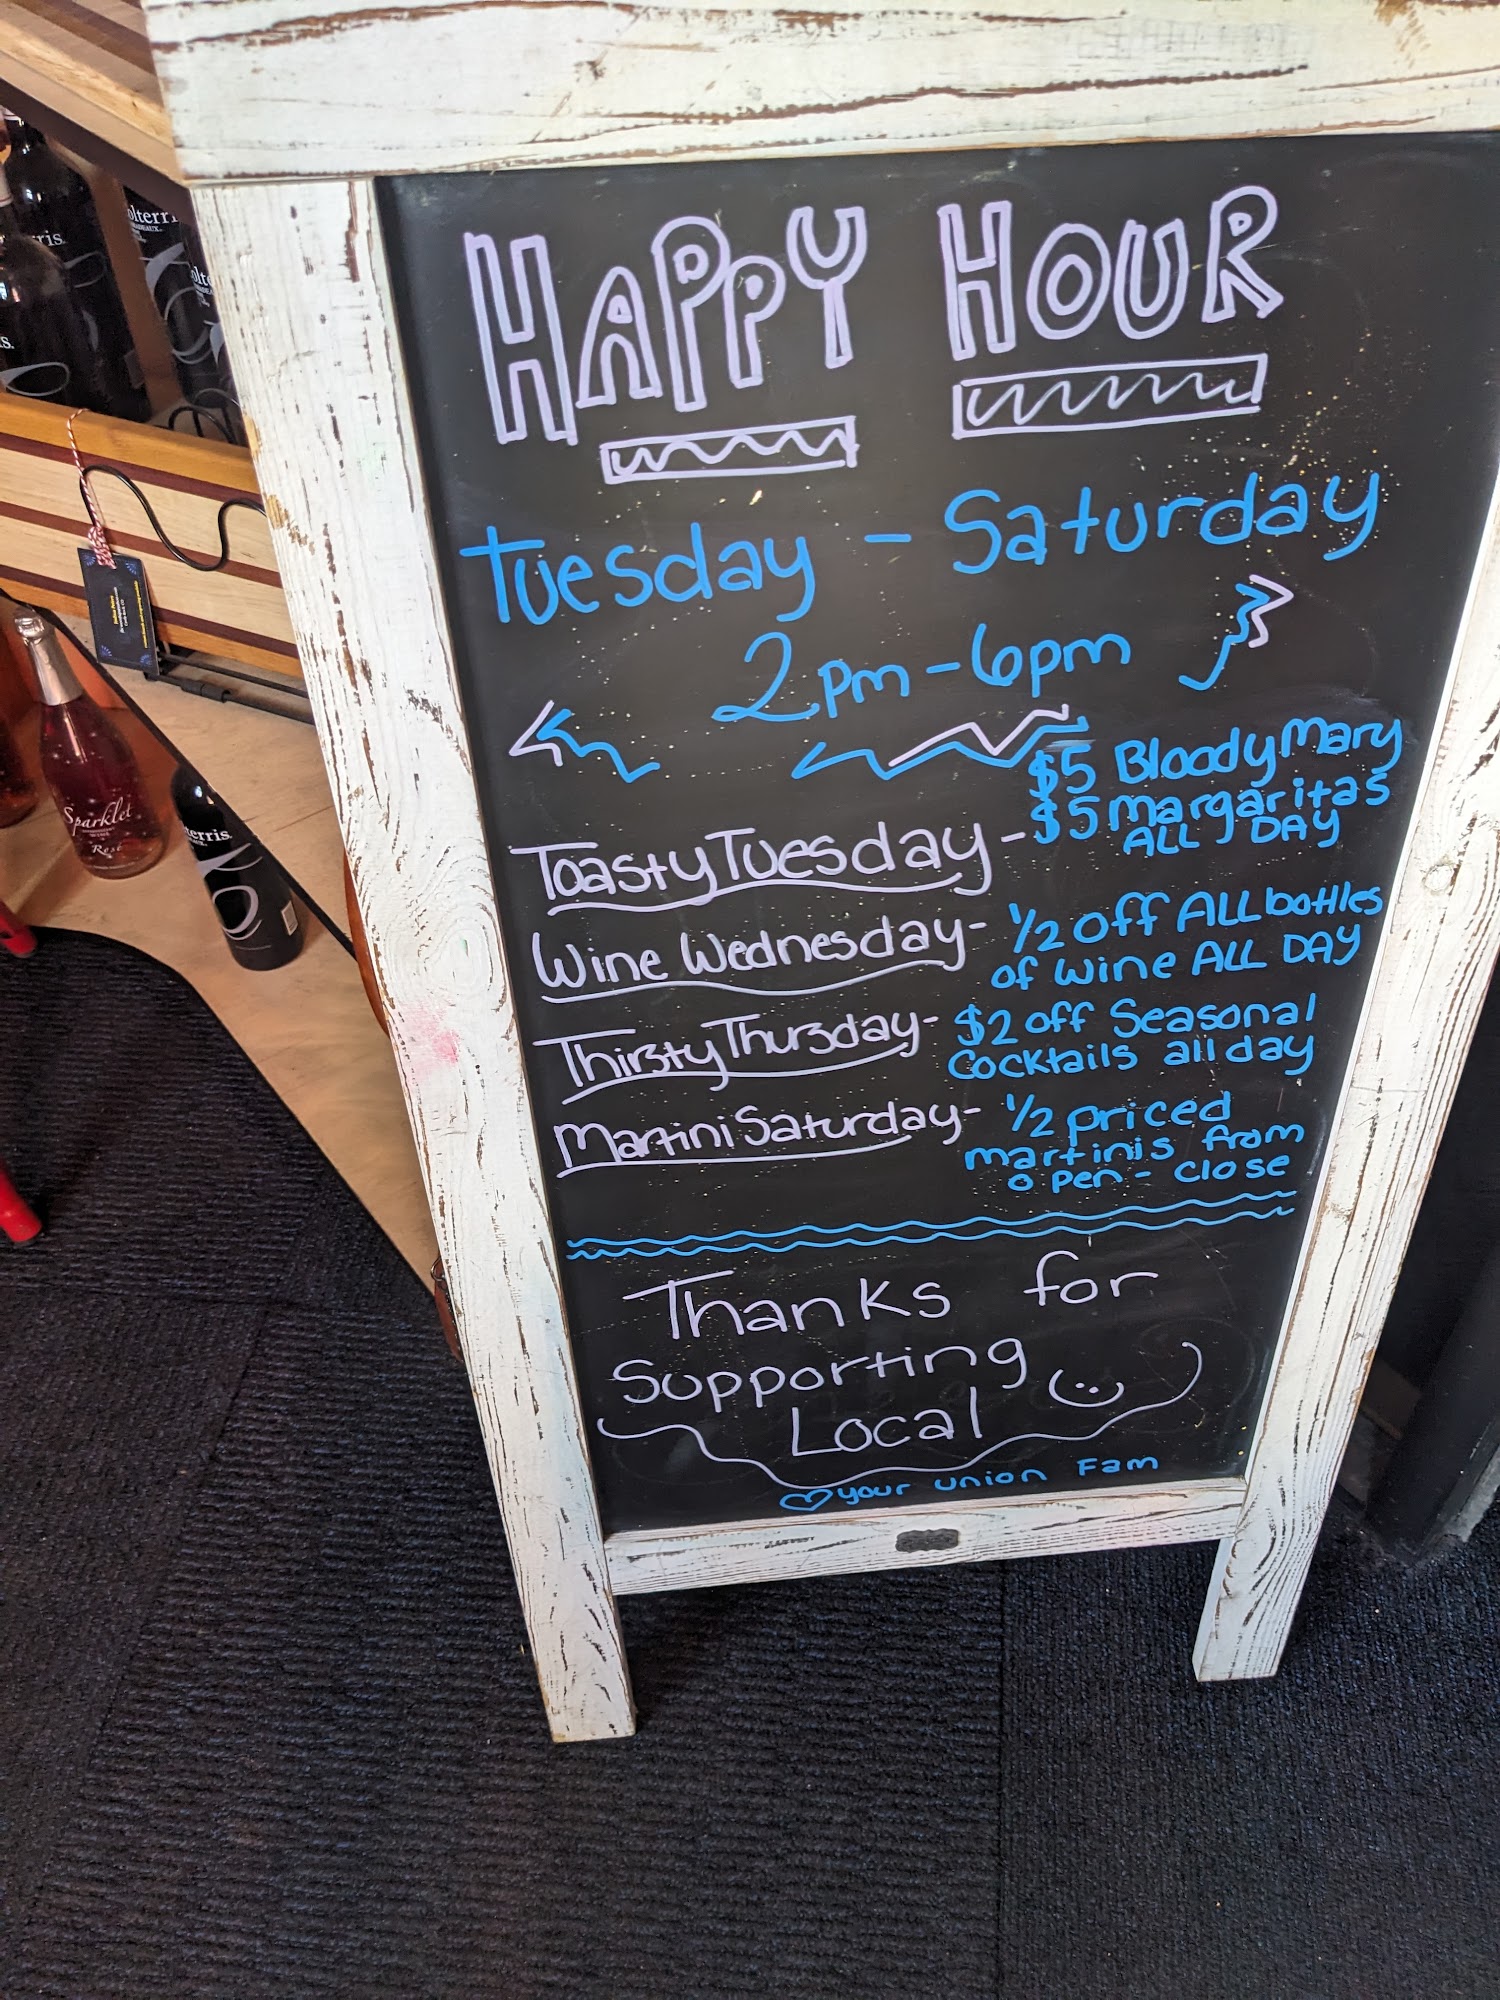 HAPPY HOUR
Tuesday - Saturday
2pm - 6pm
$5 Bloody Mary
$5 Margaritas
ALL DAY
Toasty Tuesday -
Wine Wednesday - 1/2 off ALL bottles
of wine ALL DAY
Thirsty Thursday - $2 off Seasonal
Cocktails all day
Martini Saturday - 1/2 priced
martinis from
open - close
Thanks for
Supporting
Local
your union Fam
Sparklet
Rosé
terris.
olterri